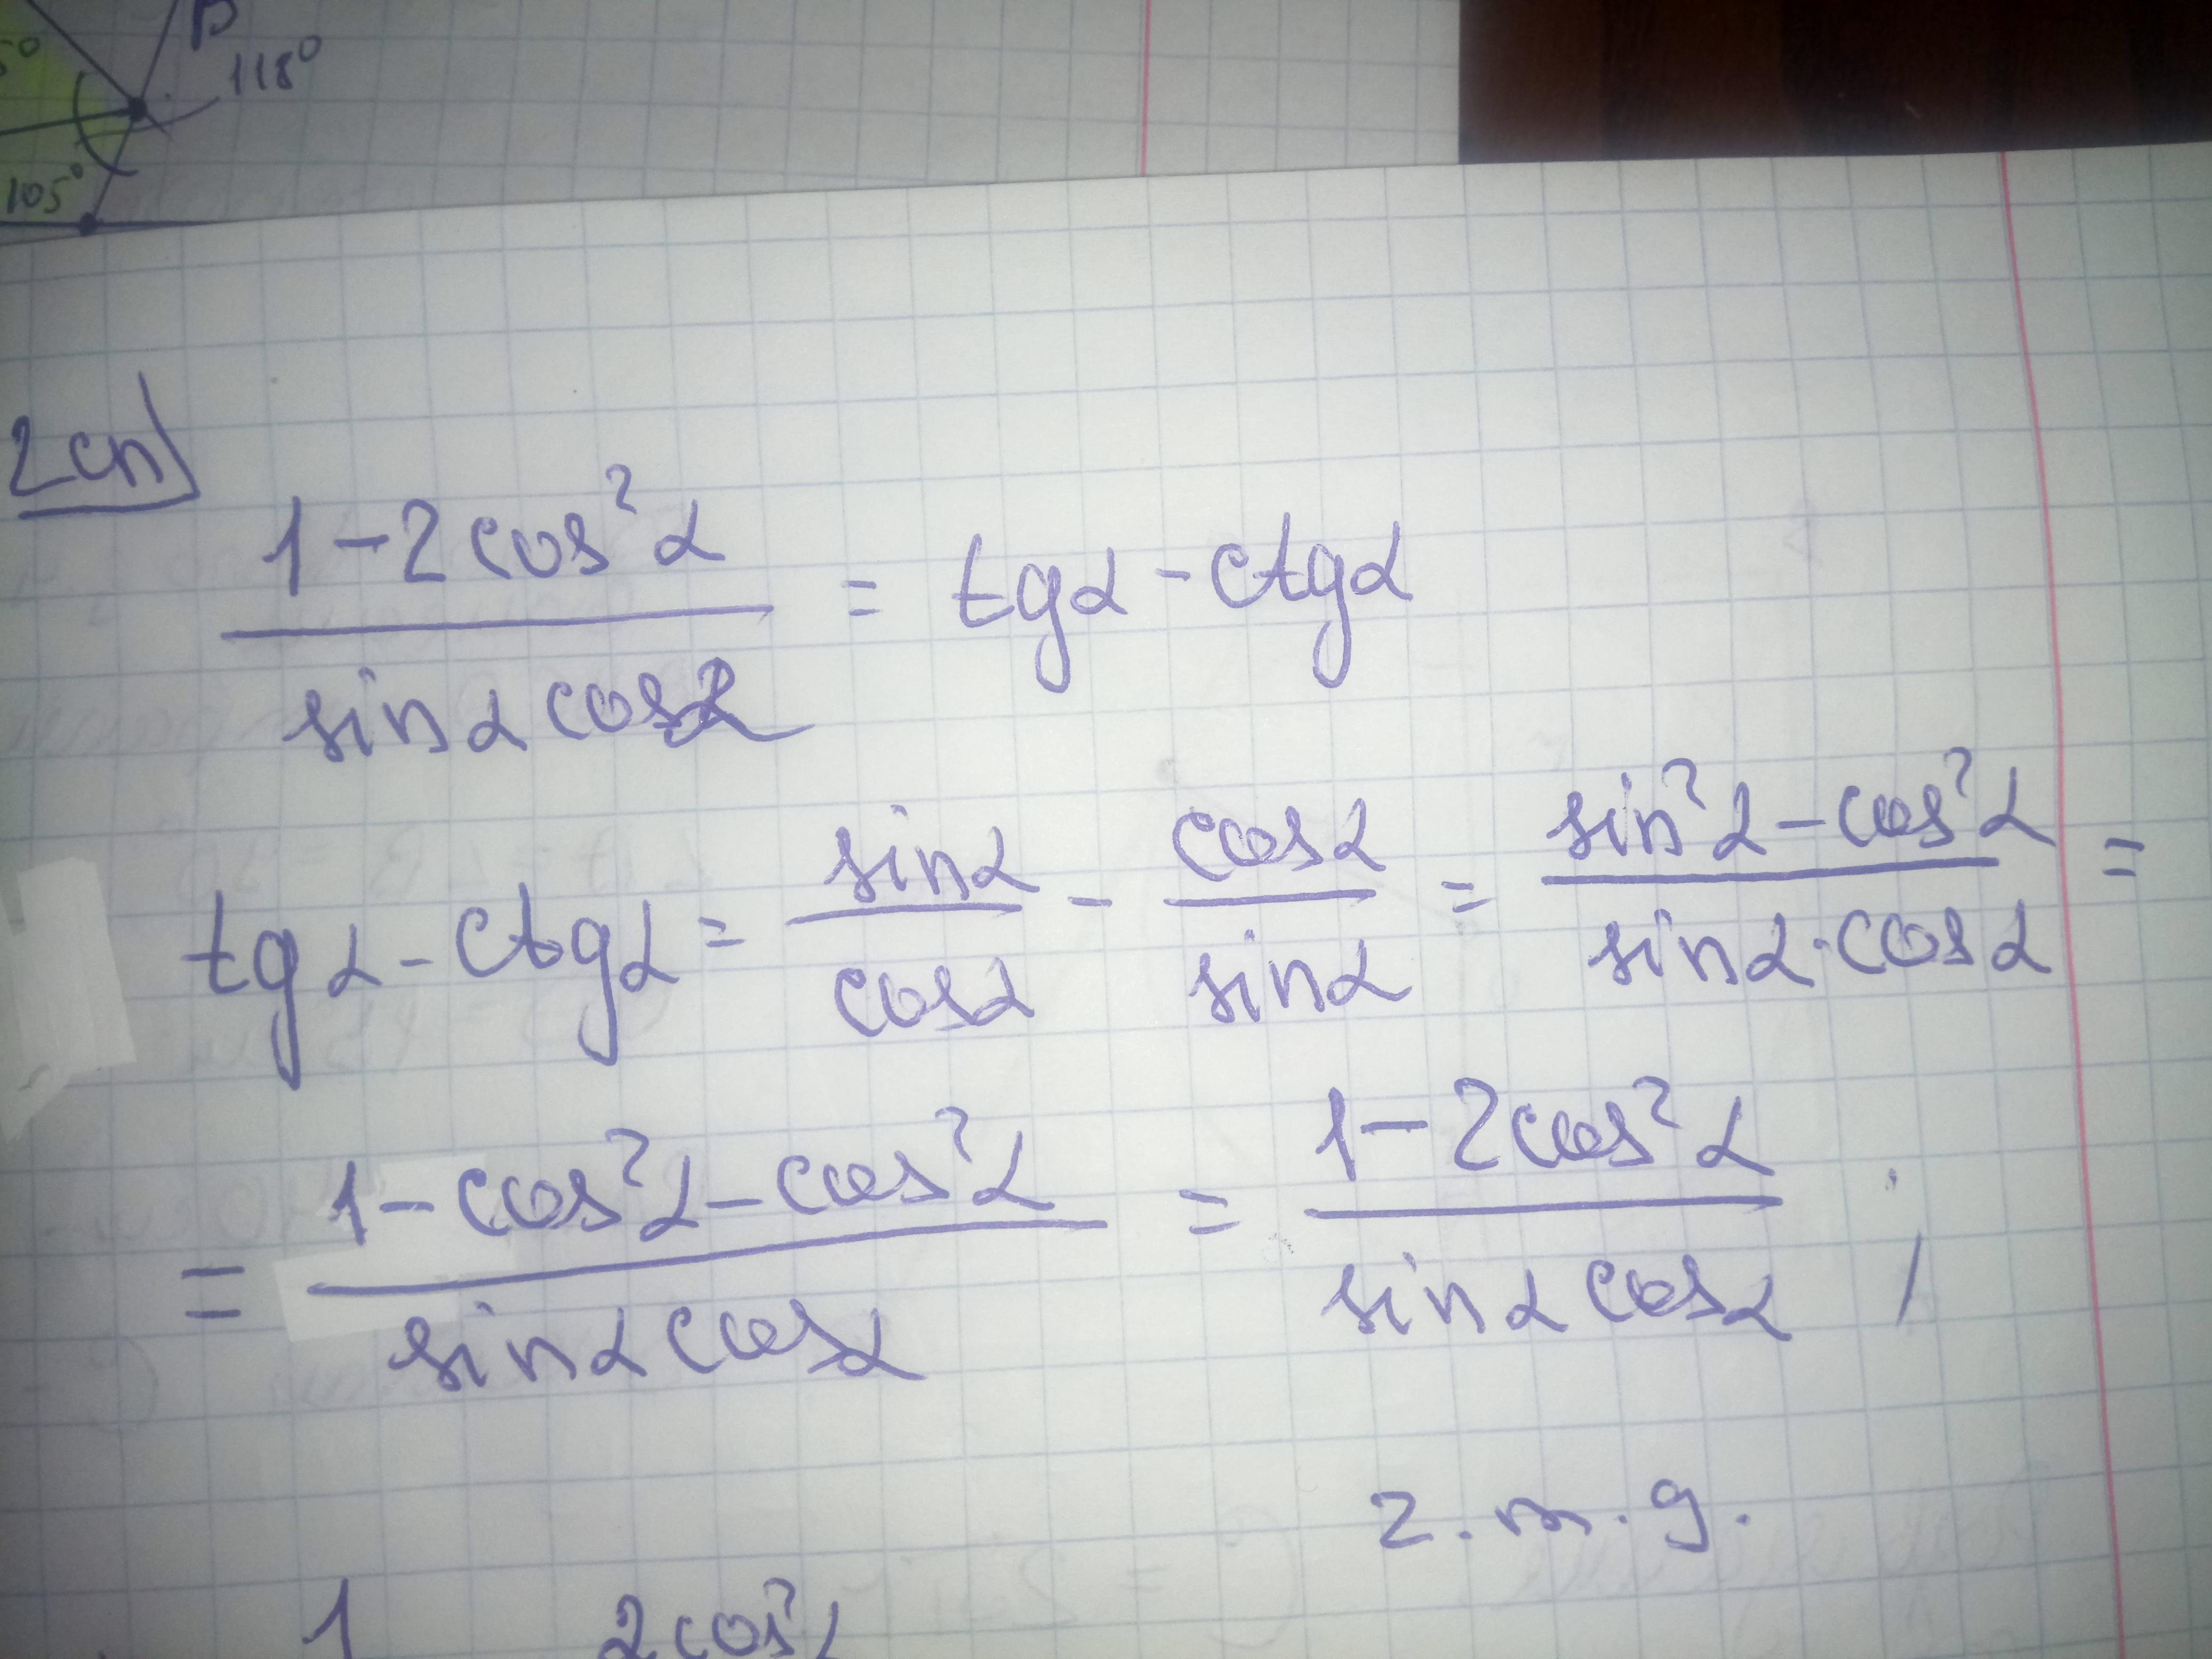 118°
105°
2 сп
(1-2cos²α)/(sinα cosα) = tgα - ctgα
tgα - ctgα = sinα/cosα - cosα/sinα = (sin²α - cos²α)/(sinα·cosα) =
= (1-cos²α-cos²α)/(sinα cosα) = (1-2cos²α)/(sinα cosα) ;
г. т. g.
1 2cos²α